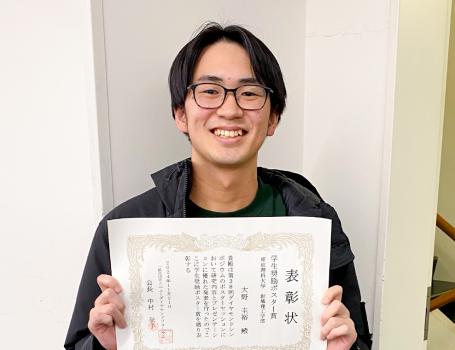 表彰状
学生奨励ポスター賞
東京理科大学 創域理工学部
大野 圭裕 殿
貴殿は第38回ダイヤモンドシン
ポジウムのポスターセッションに
おいて研究内容とプレゼンテーシ
ョンに優れた発表を行ったのでこ
こに学生奨励ポスター賞を贈り表
彰する
会長 中村